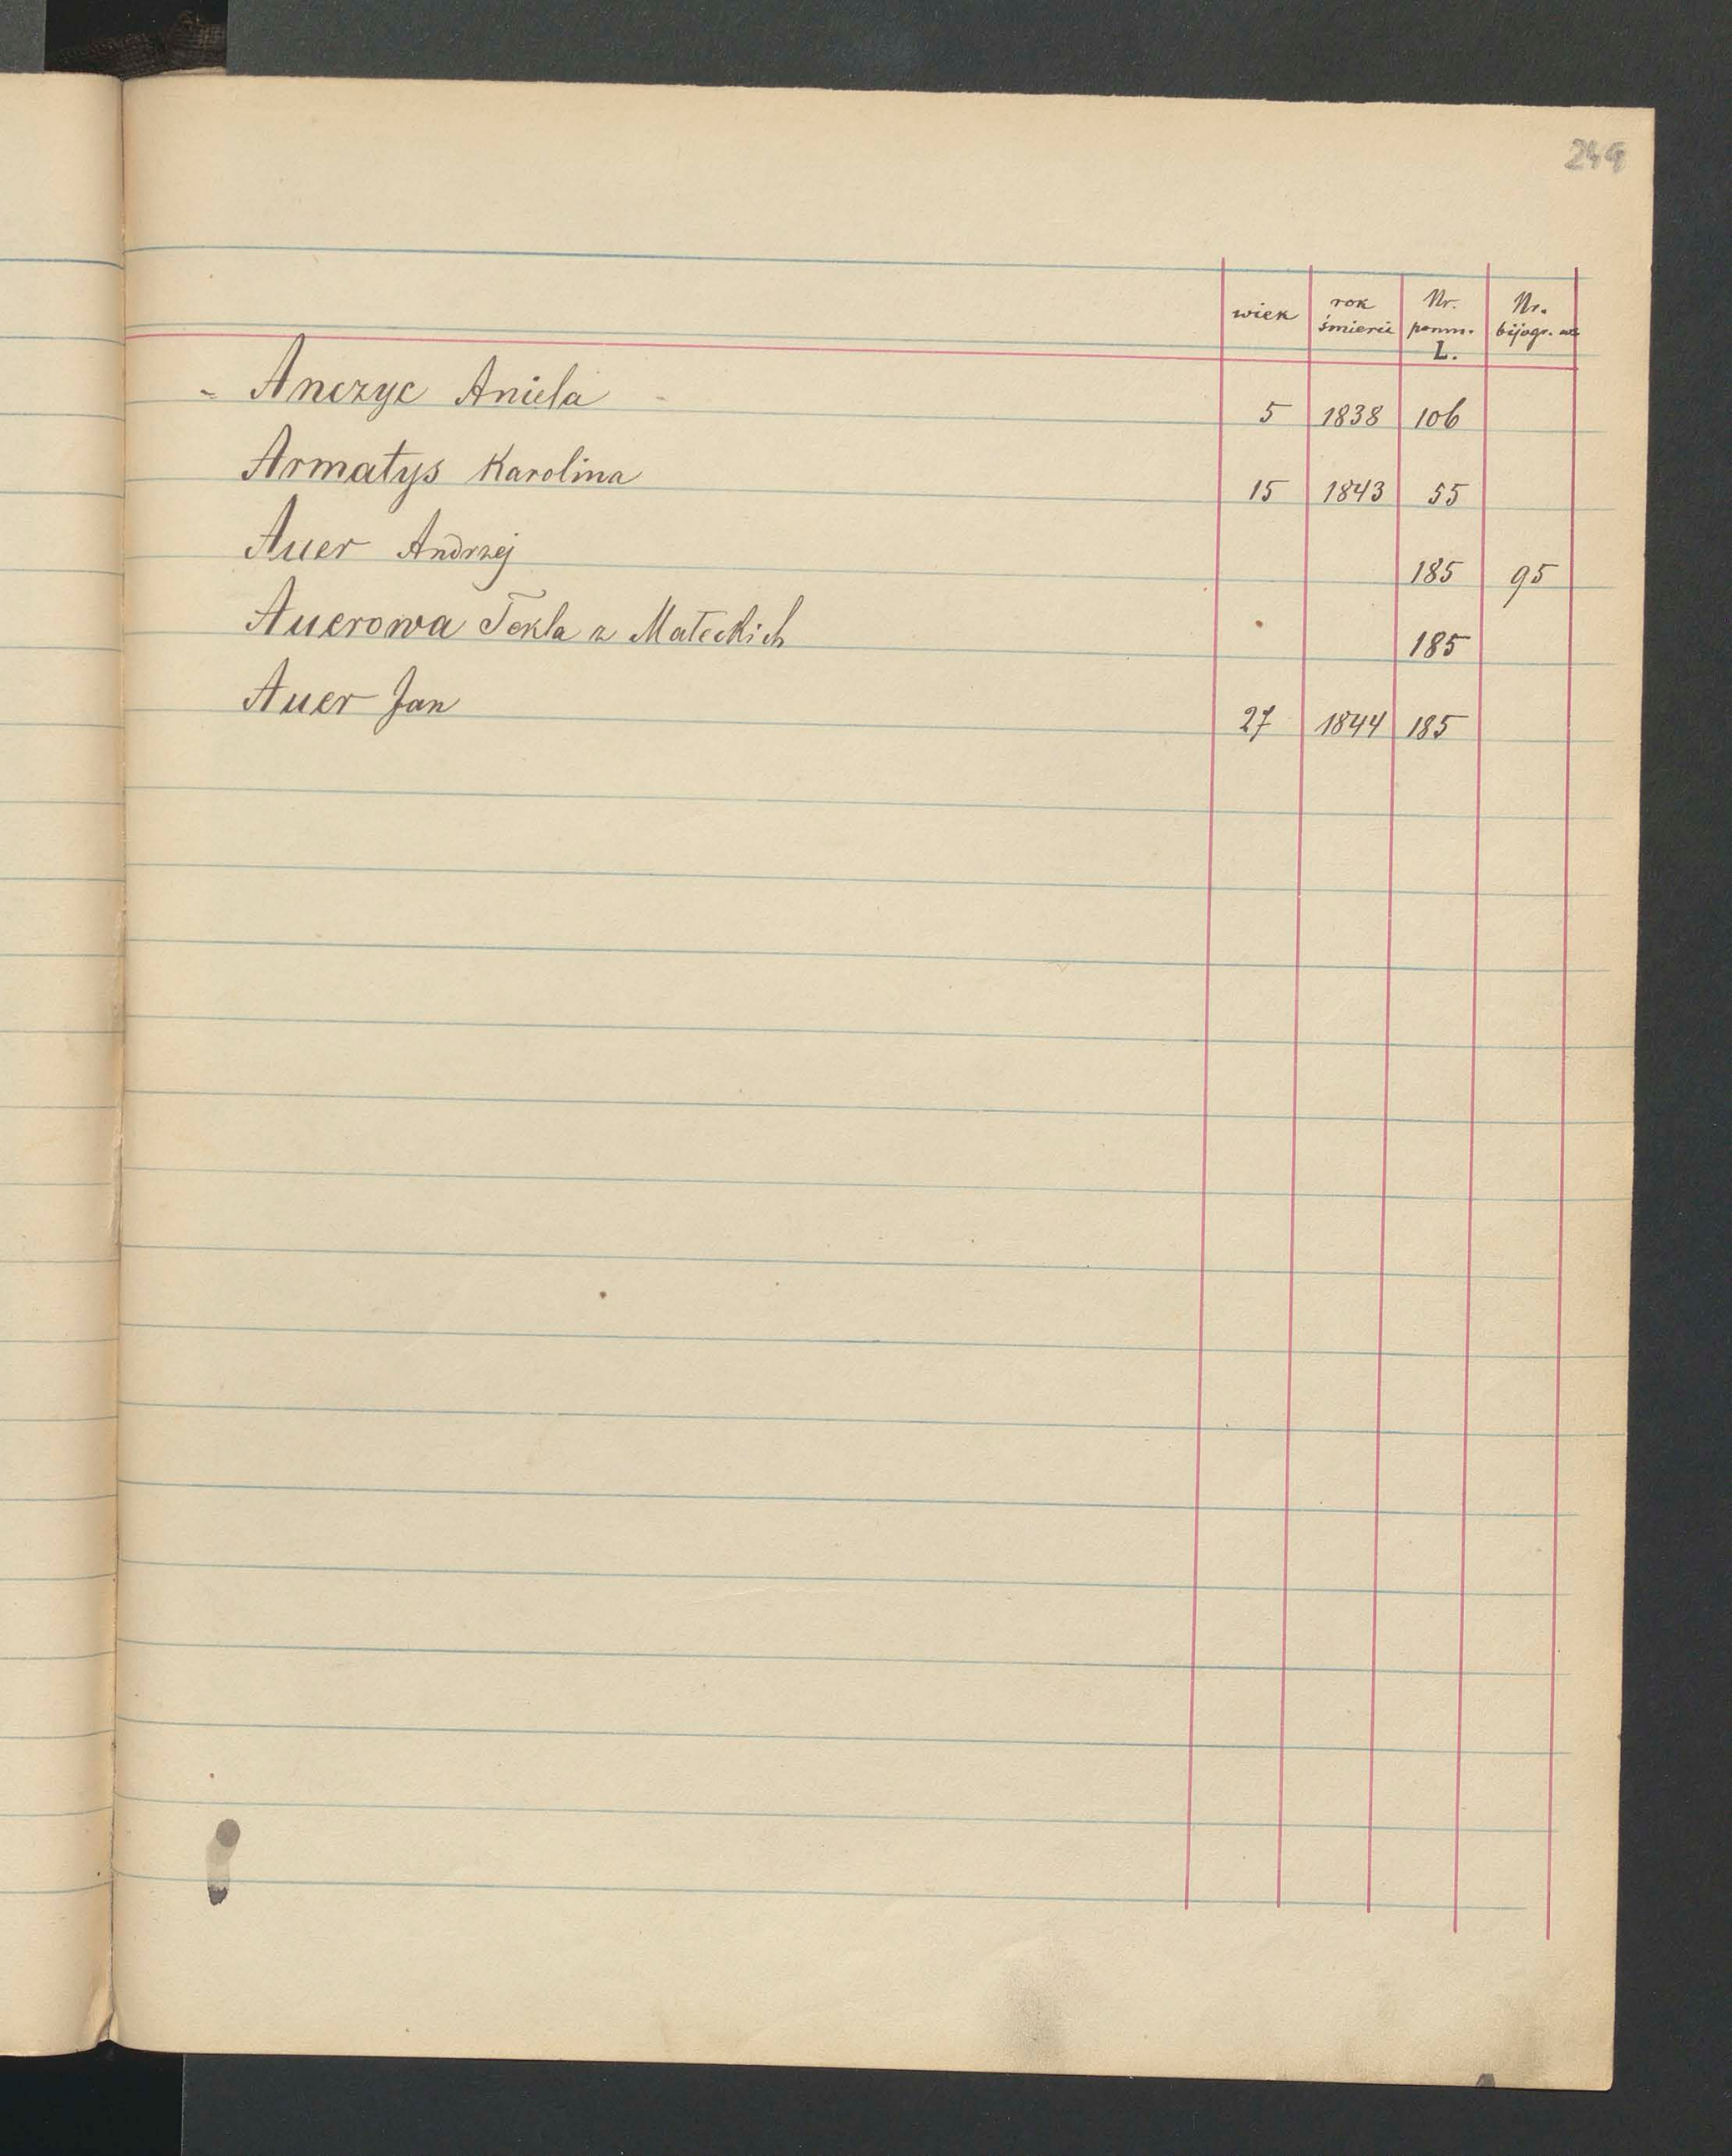 249
wiek rok śmierci Nr. pomn. L. Nr. bijogr.
Anczyc Aniela 5 1838 106
Armatys Karolina 15 1843 55
Auer Andrzej 185 95
Auerowa Tekla z Małeckich 185
Auer Jan 27 1844 185